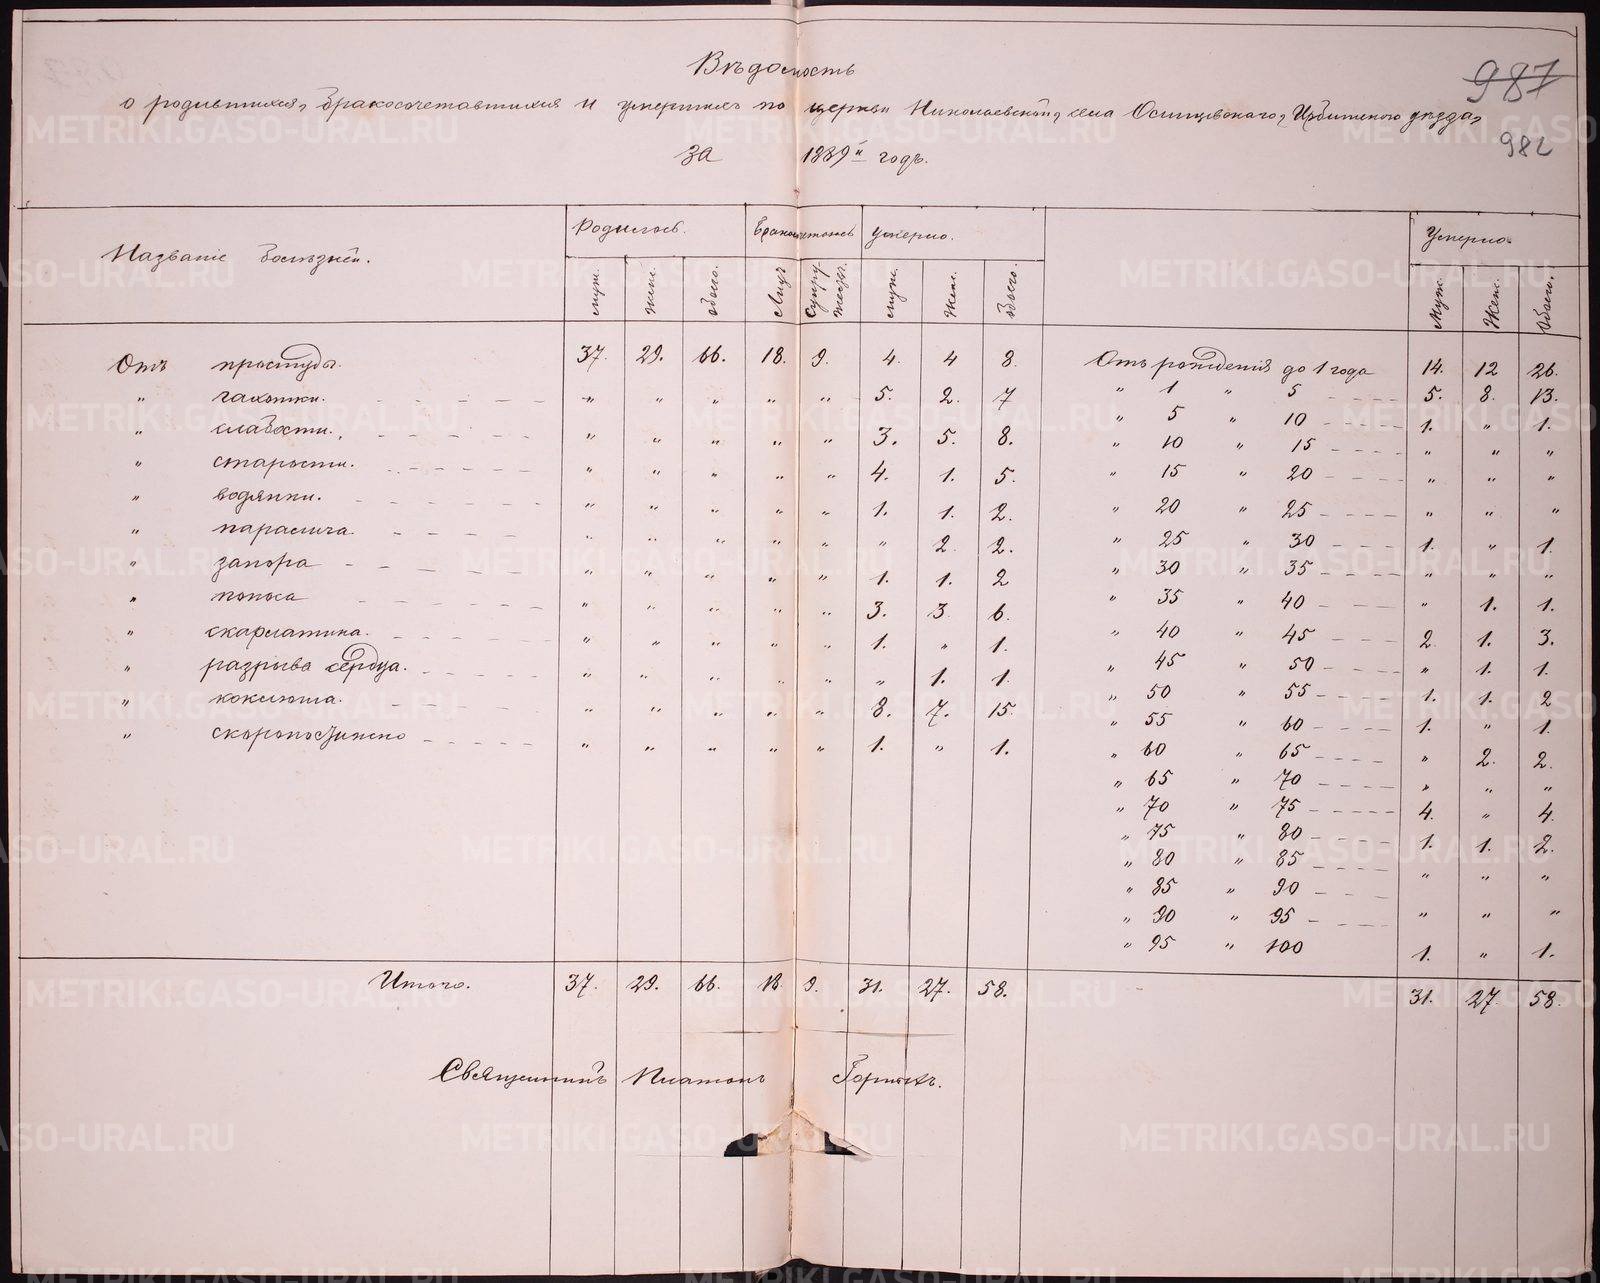 Вѣдомость
о родившихся, бракосочетавшихся и умершихъ по церкви Николаевской, села Осинцевскаго, Ирбитскаго уѣзда,
987
за 1889й годъ.
982
Названіе болѣзней. Родилось. Бракосочеталось Умерло. Умерло.
муж. жен. обоего. Лицъ Супружествъ. муж. жен. обоего. Муж. Жен. Обоего.
Отъ простуды. 37. 29. 66. 18. 9. 4. 4 8. Отъ рожденія до 1 года 14. 12 26.
„ чахотки. „ „ „ „ „ 5. 2. 7 „ 1 „ 5 5. 8. 13.
„ слабости. „ „ „ „ „ 3. 5. 8. „ 5 „ 10 1. „ 1.
„ старости. „ „ „ „ „ 4. 1. 5. „ 10 „ 15 „ „ „
„ водянки. „ „ „ „ „ 1. 1. 2. „ 15 „ 20 „ „ „
„ паралича. „ „ „ „ „ „ 2. 2. „ 20 „ 25 „ „ „
„ запора „ „ „ „ „ 1. 1. 2 „ 25 „ 30 1. „ 1.
„ поноса „ „ „ „ „ 3. 3 6. „ 30 „ 35 „ „ „
„ скарлатина. „ „ „ „ „ 1. „ 1. „ 35 „ 40 „ 1. 1.
„ разрыва сердца. „ „ „ „ „ „ 1. 1. „ 40 „ 45 2. 1. 3.
„ коклюша. „ „ „ „ „ 8. 7. 15. „ 45 „ 50 „ 1. 1.
„ скоропостижно „ „ „ „ „ 1. „ 1. „ 50 „ 55 1. 1. 2
„ 55 „ 60 1. „ 1.
„ 60 „ 65 „ 2. 2.
„ 65 „ 70 „ „ „
„ 70 „ 75 4. „ 4.
„ 75 „ 80 1. 1. 2.
„ 80 „ 85 „ „ „
„ 85 „ 90
„ 90 „ 95 „ „ „
„ 95 „ 100 1. „ 1.
Итого. 37. 29. 66. 18 9. 31. 27. 58. 31. 27. 58.
Священникъ Платонъ Горныхъ.
METRIKI.GASO-URAL.RU